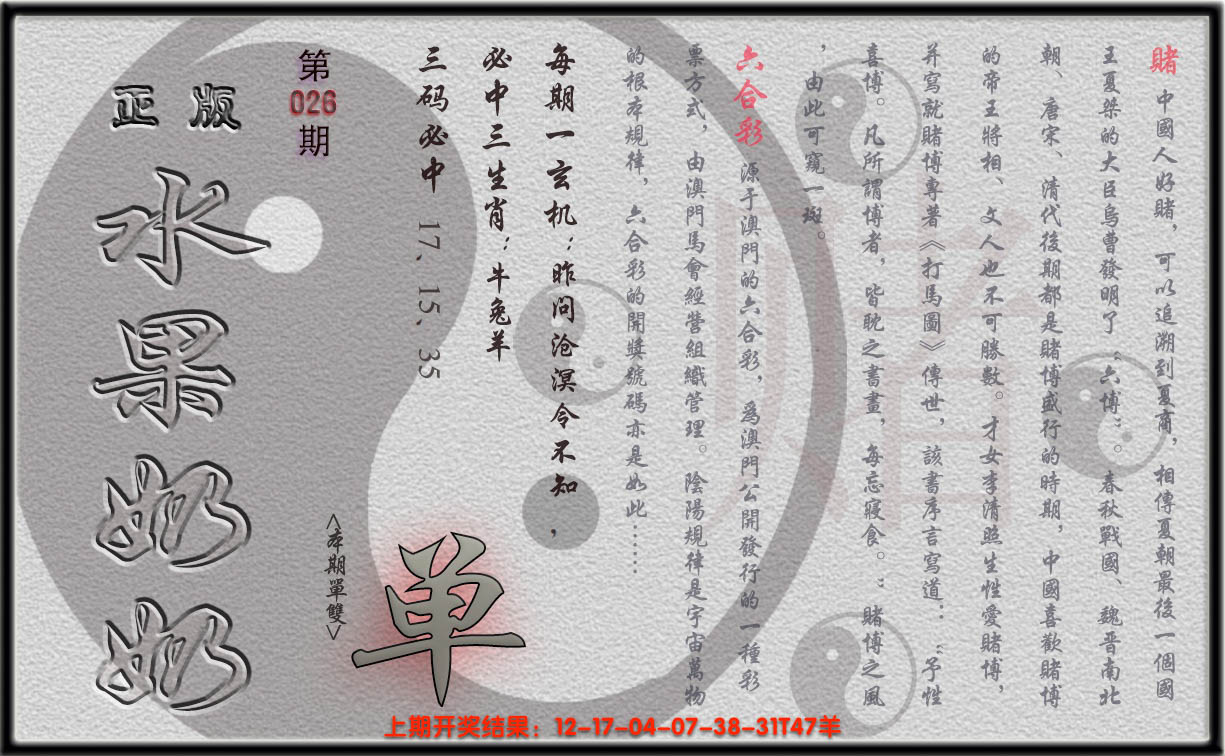 賭 中國人好賭，可以追溯到夏商，相傳夏朝最後一個國
王夏桀的大臣烏曹發明了“六博”。春秋戰國、魏晋南北
朝、唐宋、清代後期都是賭博盛行的時期，中國喜歡賭博
的帝王將相、文人也不可勝數。才女李清照生性愛賭博，
并寫就賭博專著《打馬圖》傳世，該書序言寫道：“予性
喜博。凡所謂博者，皆耽之晝畫，每忘寢食。”賭博之風
，由此可窺一斑。
六合彩 源于澳門的六合彩，爲澳門公開發行的一種彩
票方式，由澳門馬會經營組織管理。陰陽規律是宇宙萬物
的根本規律，六合彩的開獎號碼亦是如此……
每期一玄机：昨问沧溟今不知，
必中三生肖：牛兔羊
三码必中 17、15、35
第
026
期
<本期單雙>
单
正版
水果奶奶
赌
上期开奖结果：12-17-04-07-38-31T47羊